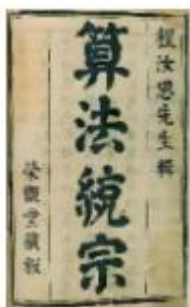 程汝思先生輯
算法統宗
榮觀堂藏板